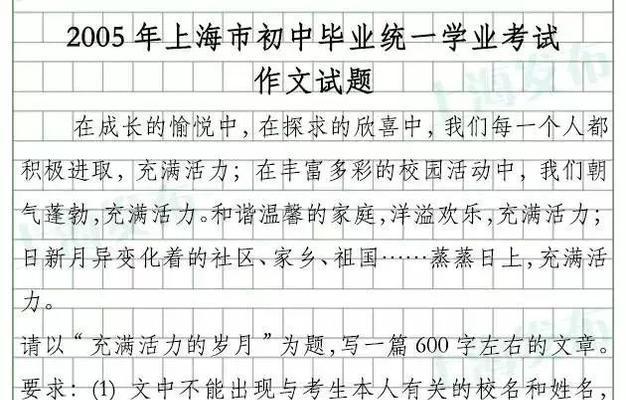 2005年上海市初中毕业统一学业考试
作文试题
在成长的愉悦中，在探求的欣喜中，我们每一个人都
积极进取，充满活力；在丰富多彩的校园活动中，我们朝
气蓬勃，充满活力。和谐温馨的家庭，洋溢欢乐，充满活力；
日新月异变化着的社区、家乡、祖国……蒸蒸日上，充满活
力。
请以“充满活力的岁月”为题，写一篇600字左右的文章。
要求：(1) 文中不能出现与考生本人有关的校名和姓名，
上海发布
上海发布
上海发布